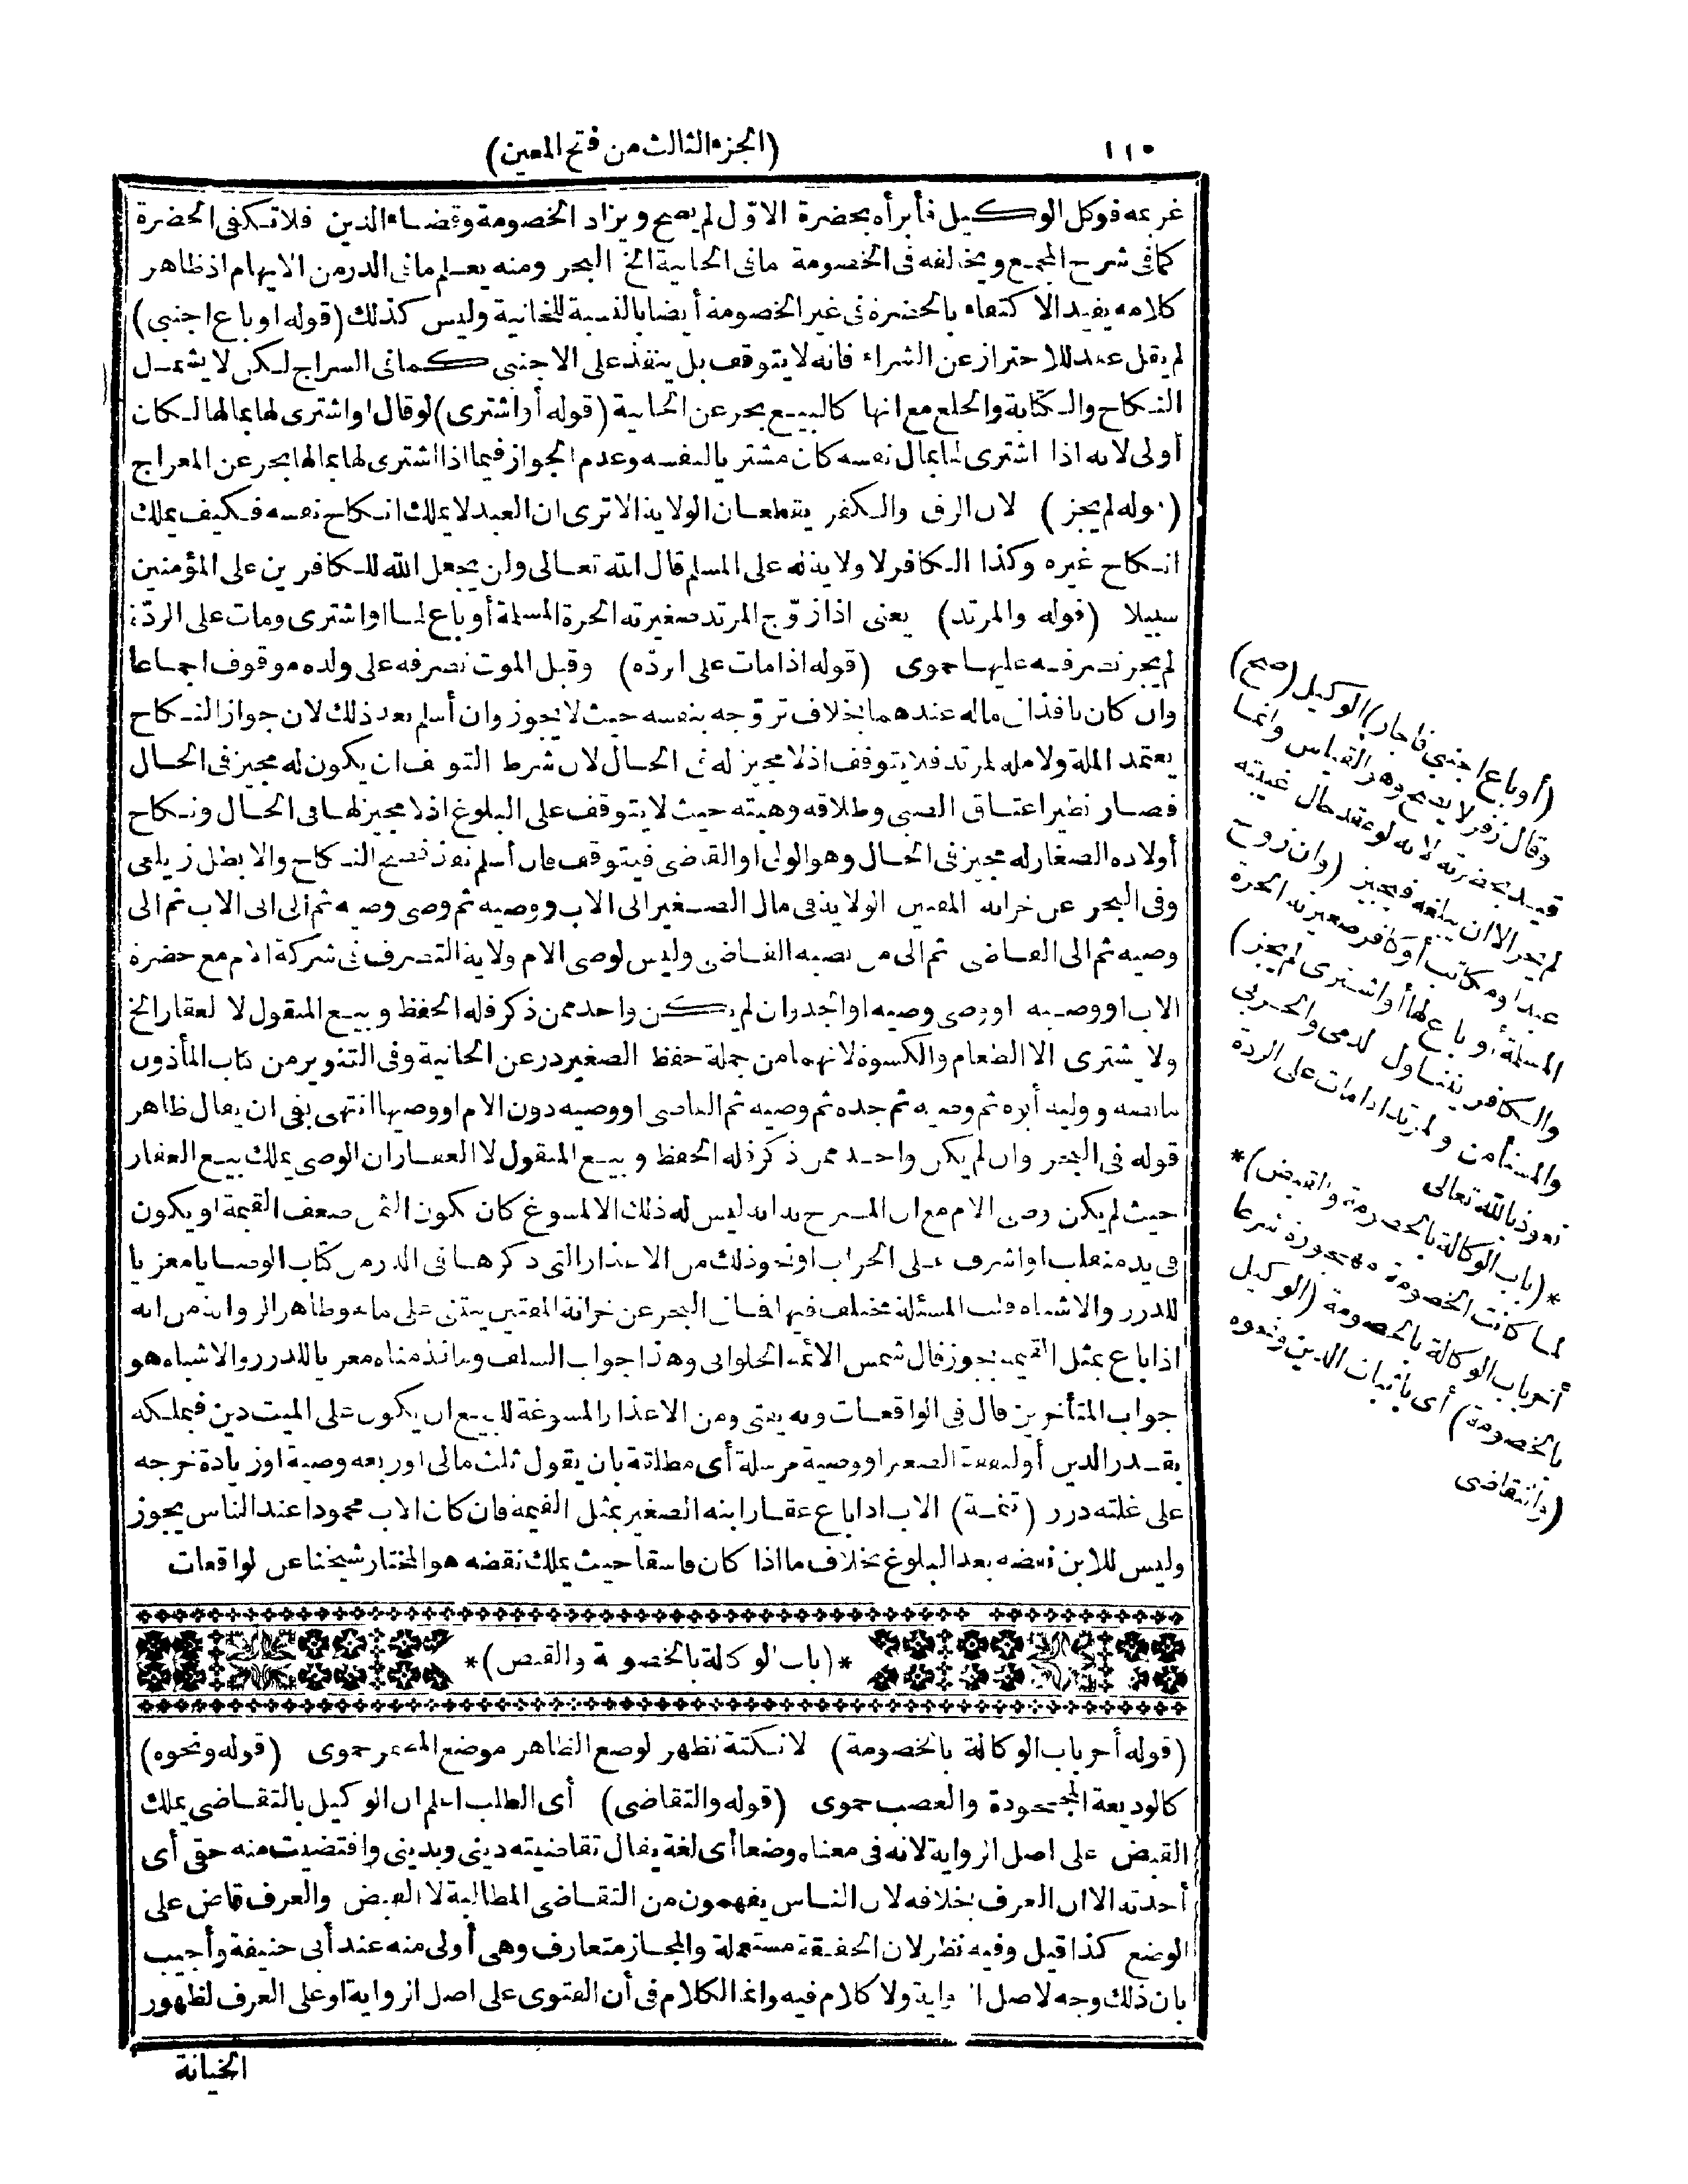 ١١٠
(الجزء الثالث من فتح المعين)
غريمه فوكل الوكيل فأبرأه بحضرة الاوّل لم يصح ويزاد الخصومة وقضاء الدين فلا تكفى الحضرة
كما فى شرح المجمع ويخالفه فى الخصومة ما فى الخانية الخ البحر ومنه يعلم ما فى الدر من الايهام اذ ظاهر
كلامه يفيد الاكتفاء بالحضرة فى غير الخصومة أيضا بالنسبة للخانية وليس كذلك (قوله او باع اجنبى)
لم يقل عقد للاحتراز عن الشراء فانه لا يتوقف بل ينفذ على الاجنبى كما فى السراج لكن لا يشمل
النكاح والكتابة والخلع مع انها كالبيع بحر عن الخانية (قوله أو اشترى) لو قال او اشترى لها بمالها لكان
أولى لانه اذا اشترى لها بمال نفسه كان مشتريا لنفسه وعدم الجواز فيما اذا اشترى لها بمالها بحر عن المعراج
(قوله لم يجز) لان الرق والكفر يقطعان الولاية ألا ترى ان العبد لا يملك انكاح نفسه فكيف يملك
انكاح غيره وكذا الكافر لا ولاية له على المسلم قال الله تعالى ولن يجعل الله للكافرين على المؤمنين
سبيلا (قوله والمرتد) يعنى اذا زوّج المرتد صغيرته الحرة المسلمة أو باع لها او اشترى ومات على الردّة
لم يجز تصرفه عليها حموى (قوله اذا مات على الردّه) وقبل الموت تصرفه على ولده موقوف اجماعا
وان كان نافذا فى ماله عندهما بخلاف تزوّجه بنفسه حيث لا يجوز وان أسلم بعد ذلك لان جواز النكاح
يعتمد الملة ولا مله لمرتد فلا يتوقف اذ لا مجيز له فى الحال لان شرط التوقف ان يكون له مجيز فى الحال
فصار نظير اعتاق الصبى وطلاقه وهبته حيث لا يتوقف على البلوغ اذ لا مجيز لها فى الحال ونكاح
أولاده الصغار له مجيز فى الحال وهو الولى او القاضى فيتوقف فان أسلم نفذ فصح النكاح والا بطل زيلعى
وفى البحر عن خزانه المفتين الولاية فى مال الصغير الى الاب ووصيه ثم وصى وصيه ثم الى ابى الاب ثم الى
وصيه ثم الى القاضى ثم الى من نصبه القاضى وليس لوصى الام ولاية التصرف فى تركة الام مع حضرة
الاب او وصيه او وصى وصيه او الجد وان لم يكن واحد ممن ذكر فله الحفظ وبيع المنقول لا العقار الخ
ولا يشترى الا الطعام والكسوة لانهما من جملة حفظ الصغير در عن الخانية وفى التنوير من كتاب المأذون
ما نصه ووليه أبوه ثم وصيه ثم جده ثم وصيه ثم القاضى او وصيه دون الام او وصيها انتهى بقى ان يقال ظاهر
قوله فى البحر وان لم يكن واحد ممن ذكر فله الحفظ وبيع المنقول لا العقار ان الوصى يملك بيع العقار
حيث لم يكن وصى الام مع ان المصرح به انه ليس له ذلك الا لمسوغ كان كون الثمن ضعف القيمة او يكون
فى يد متغلب او اشرف على الخراب او نحو ذلك من الاعذار التى ذكرها فى الدر من كتاب الوصايا معزيا
للدرر والاشباه قلت المسئلة مختلف فيها فما فى البحر عن خزانة المفتين يبتنى على ما هو ظاهر الرواية من انه
اذا باع بمثل القيمة يجوز قال شمس الائمة الحلوانى وهذا جواب السلف وما قدمناه معزيا للدرر والاشباه هو
جواب المتأخرين قال فى الواقعات وبه يفتى ومن الاعذار المسوغة للبيع ان يكون على الميت دين فيملكه
بقدر الدين أو لنفقة الصغير او وصية مرسلة أى مطلقة بان يقول ثلث مالى او ربعه وصية او زيادة خرجه
على غلته درر (تتمة) الاب اذا باع عقار ابنه الصغير بمثل القيمة فان كان الاب محمودا عند الناس يجوز
وليس للابن نقضه بعد البلوغ بخلاف ما اذا كان فاسقا حيث يملك نقضه هو المختار شيخنا عن الواقعات
*(باب الوكالة بالخصومة والقبض)*
(قوله أخر باب الوكالة بالخصومة) لا نكتة تظهر لوضع الظاهر موضع المضمر حموى (قوله ونحوه)
كالوديعة المجحودة والغصب حموى (قوله والتقاضى) أى الطلب اعلم ان الوكيل بالتقاضى يملك
القبض على اصل الرواية لانه فى معناه وضعا أى لغة يقال تقاضيته دينى وبدينى واقتضيت منه حقى أى
أخذته الا ان العرف بخلافه لان الناس يفهمون من التقاضى المطالبة لا القبض والعرف قاض على
الوضع كذا قيل وفيه نظر لان الحقيقة مستعملة والمجاز متعارف وهى أولى منه عند أبى حنيفة وأجيب
بان ذلك وجه لاصل الرواية ولا كلام فيه وانما الكلام فى أن الفتوى على اصل الرواية او على العرف لظهور
الخيانة
(أو باع اجنبى فاجاز) الوكيل (صح)
وقال زفر لا يصح وهو القياس وانما
قيد بحضرته لانه لو عقد حال غيبته
لم يجز الا ان يبلغه فيجيز (وان زوج
عبد او مكاتب أو كافر صغيرته الحرة
المسلمة أو باع لها أو اشترى لم يجز)
والكافر يتناول الذمى والحربى
والمستأمن والمرتد اذا مات على الردة
نعوذ بالله تعالى
*(باب الوكالة بالخصومة والقبض)*
لما كانت الخصومة مهجورة شرعا
أخر باب الوكالة بالخصومة (الوكيل
بالخصومة) أى باثبات الدين ونحوه
(والتقاضى